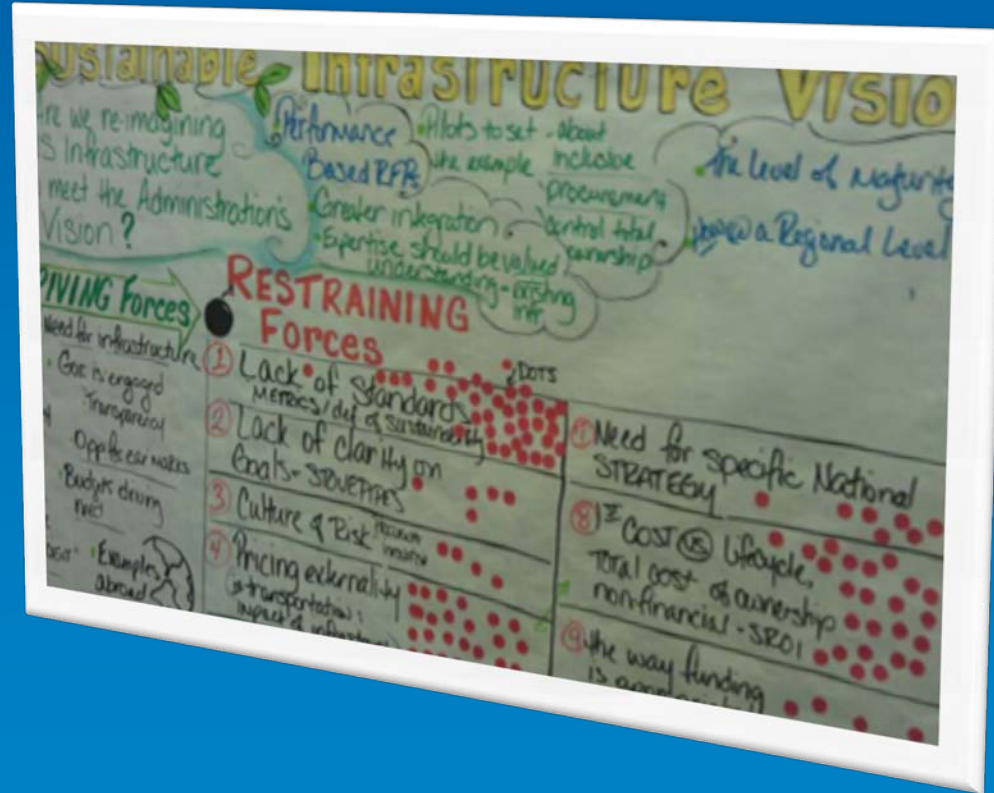 Sustainable Infrastructure Visio
re we re-imagining
S Infrastructure
meet the Administration's
Vision?
Performance
Based RFPs
Pilots to set
the example
Greater integration
Expertise should be valued
understanding - existing
infr
about
inclusive
procurement
control total
ownership
the Level of Maturity
a Regional Level
DRIVING Forces
Need for infrastructure
Gov is engaged
Transparency
Budgets driving
need
Examples
abroad
RESTRAINING
Forces
DOTS
1 Lack of Standards
METRICS/def of sustainability
2 Lack of Clarity on
Goals - STOVEPIPES
3 Culture & Risk
4 Pricing externality
transportation:
impact of
Need for specific National
STRATEGY
8 1st COST VS Lifecycle,
Total cost of ownership
non-financial - SROI
9 the way funding
is